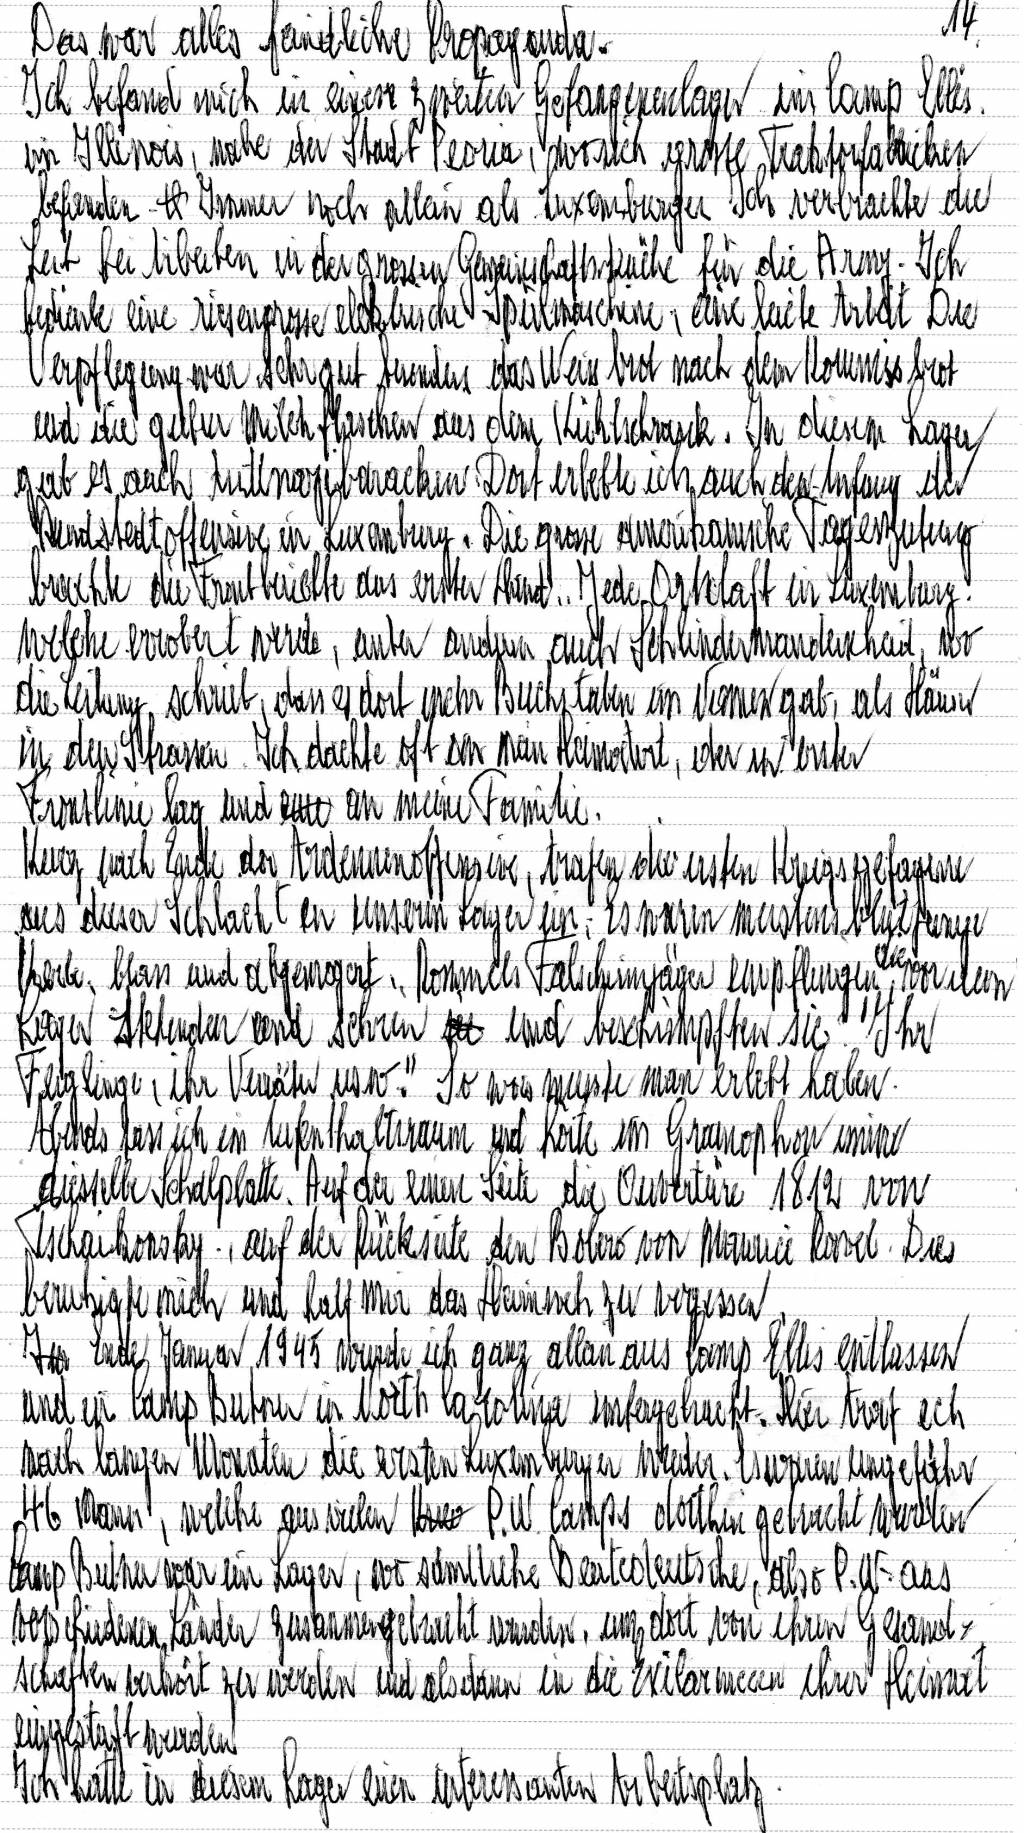 14.
Das war alles feindliche Propaganda.
Ich befand mich in einem zweiten Gefangenenlager im Camp Ellis.
in Illinois, nahe der Stadt Peoria, wo sich grosse Traktorfabriken
befanden Immer noch allein als Luxemburger Ich verbrachte die
Zeit bei Arbeiten in der grossen Gemeinschaftsküche für die Army. Ich
bediente eine riesengrosse elektrische Spülmaschine, eine leichte Arbeit Die
Verpflegung war sehr gut besonders das Weissbrot nach dem Kommissbrot
und die guten Milchflaschen aus dem Kühlschrank. In diesem Lager
gab es auch Antinazibaracken. Dort erlebte ich auch den Anfang der
Rundstedtoffensive in Luxemburg. Die grosse amerikanische Tageszeitung
brachte die Frontberichte aus erster Hand.. Jede Ortschaft in Luxemburg.
welche erobert werde, unter andern auch Schlindermanderscheid, wo
die Zeitung schrieb, dass es dort mehr Buchstaben im Namen gab, als Häuser
in den Strassen. Ich dachte oft an mein Heimatort, der in erster
Frontlinie lag und an meine Familie.
Kurz nach Ende der Ardennenoffensive, trafen die ersten Kriegsgefagene
aus dieser Schlacht in unserem Lager ein. Es waren meistens blutjunge
Kerle, blass und abgemagert. Rommels Falschirmjäger empfiengen die vor dem
Lager stehenden und schrien und beschimpften sie. "Ihr
Feiglinge, ihr Verräter usw." So was musste man erlebt haben.
Abends sass ich im Aufenthaltsraum und hörte im Gramophon immer
dieselbe Schalplatte. Auf der einen Seite die Ouvertüre 1812 von
Tschaikowsky., auf der Rückseite den Bolero von Maurice Ravel. Dies
beruhigte mich und half mir das Heimweh zu vergessen.
Ende Januar 1945 wurde ich ganz allein aus Camp Ellis entlassen
und in Camp Butner in North Carolina untergebracht. Hier traf ich
nach langen Monaten die ersten Luxemburger wieder. Es waren ungefähr
46 Mann, welche aus vielen P.W. Camps dorthin gebracht wurden
Camp Butner war ein Lager, wo sämtliche Beutedeutsche, also P.W. aus
verschiedenen Länder zusammengebracht wurden, um dort von ihren Gesand-
schaften verhört zu werden und alsdann in die Exilarmeen ihrer Heimat
eingestuft werden
Ich hatte in diesem Lager einen interessanten Arbeitsplatz.